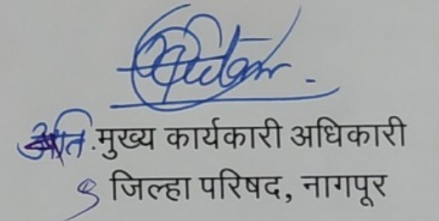 अति.मुख्य कार्यकारी अधिकारी
जिल्हा परिषद, नागपूर